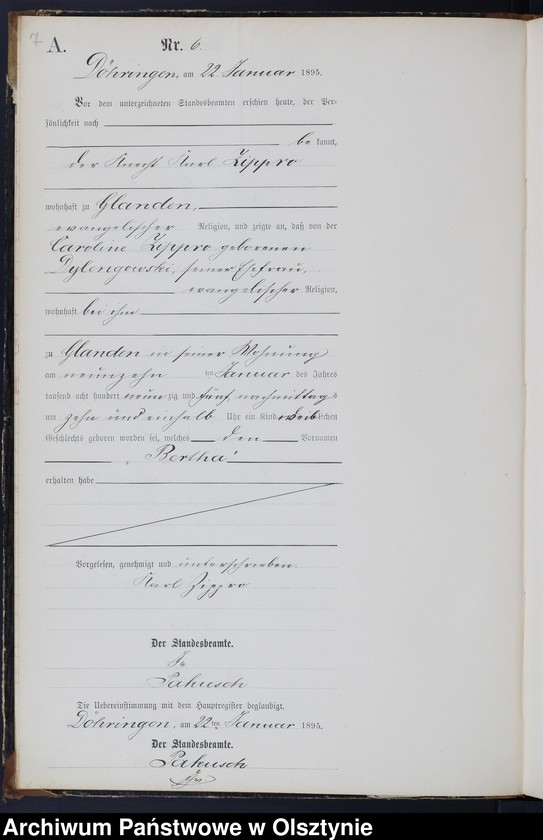 7
A.
Nr. 6.
Döhringen, am 22. Januar 1895.
Vor dem unterzeichneten Standesbeamten erschien heute, der Per-
sönlichkeit nach
be kannt,
der Knecht Karl Zippro
wohnhaft zu Glanden,
evangelischer Religion, und zeigte an, daß von der
Caroline Zippro geborenen
Dylengowski, seiner Ehefrau,
evangelischer Religion,
wohnhaft bei ihm
zu Glanden in seiner Wohnung
am neunzehn ten Januar des Jahres
tausend acht hundert neun zig und fünf nachmittags
um zehn und einhalb Uhr ein Kind weiblichen
Geschlechts geboren worden sei, welches den Vornamen
„Bertha"
erhalten habe
Vorgelesen, genehmigt und unterschrieben.
Karl Zippro.
Der Standesbeamte.
Pakusch
Die Uebereinstimmung mit dem Hauptregister beglaubigt.
Döhringen, am 22ten Januar 1895.
Der Standesbeamte.
Pakusch
Archiwum Państwowe w Olsztynie